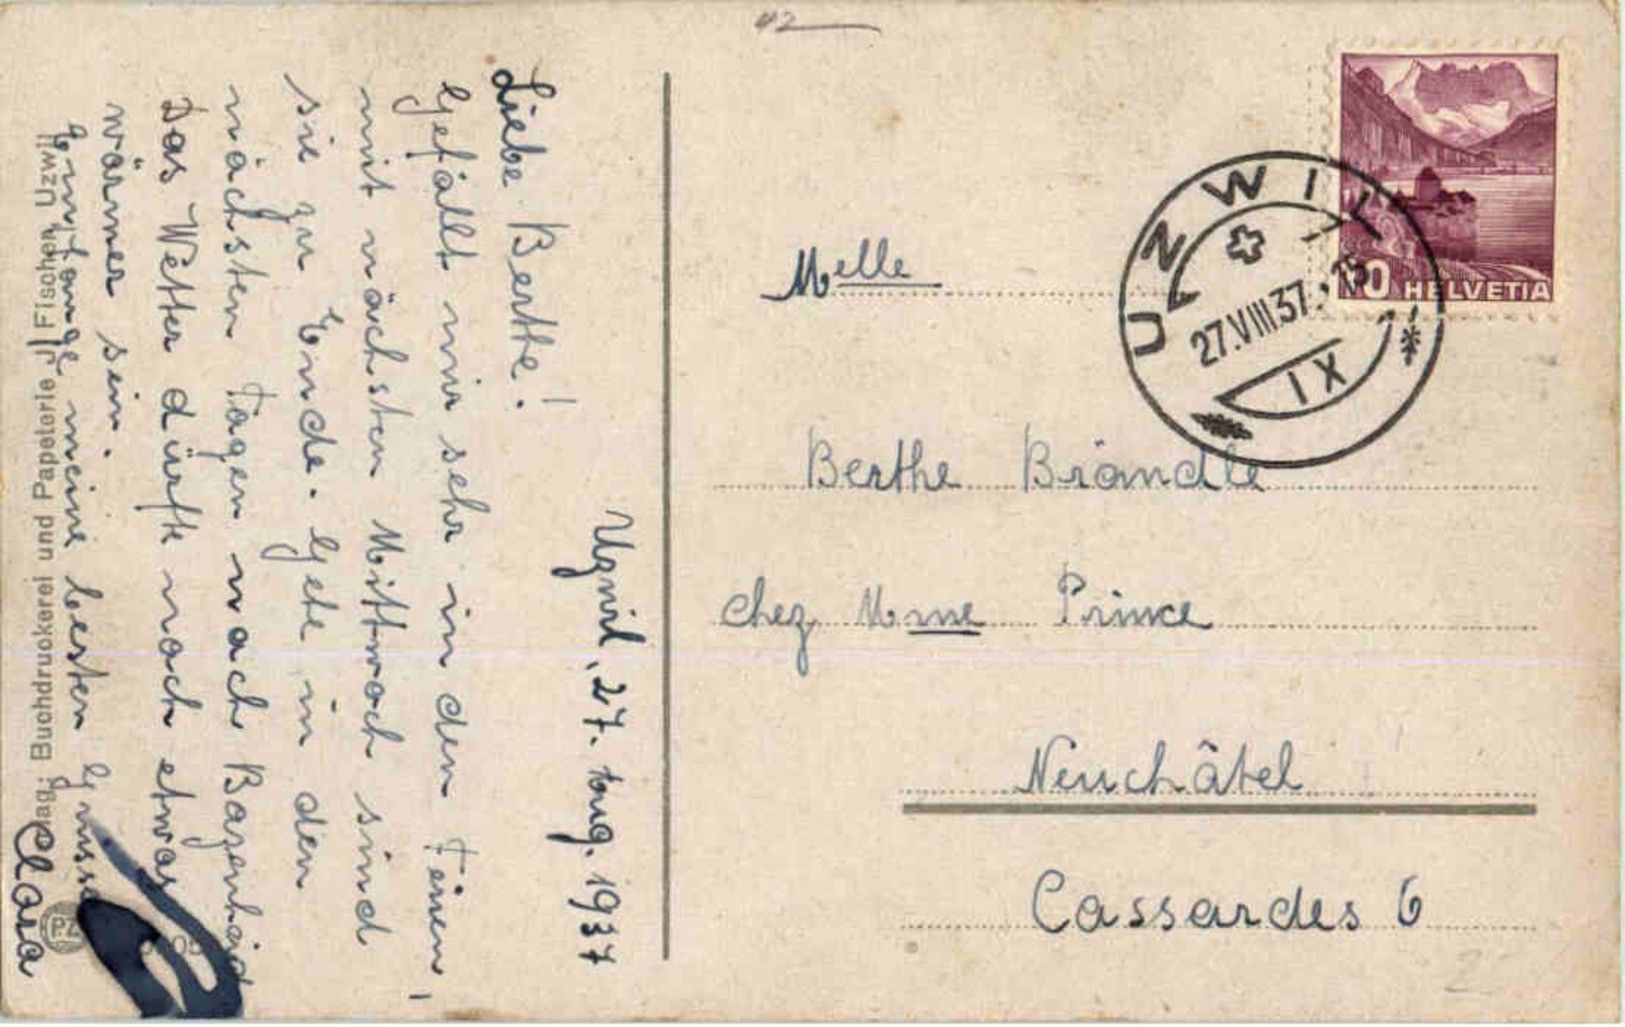 Uzwil, 27. Aug. 1937
Liebe Berthe!
Gefällt mir sehr in den Ferien,
mit nächsten Mittwoch sind
sie zu Ende. Gehe in den
nächsten Tagen nach Bazenheid
Das Wetter dürfte noch etwas
wärmer sein.
Empfange meine besten Grüsse
Clara
Buchdruckerei und Papeterie J. Fischer, Uzwil
PZ
Melle
Berthe Brändle
chez Mme Prince
Neuchâtel
Cassardes 6
UZWIL
27.VIII.37
IX
10 HELVETIA